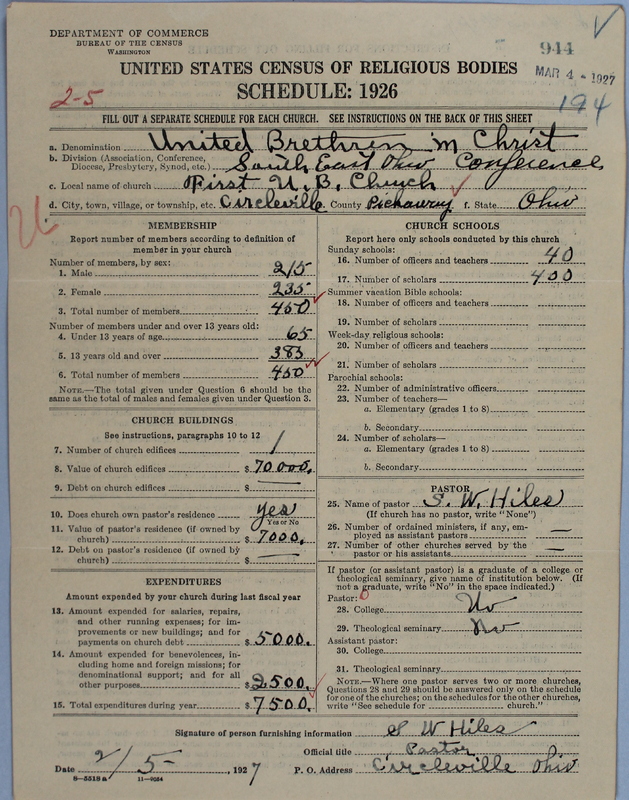 DEPARTMENT OF COMMERCE
BUREAU OF THE CENSUS
WASHINGTON
944
MAR 4 - 1927
194
UNITED STATES CENSUS OF RELIGIOUS BODIES
SCHEDULE: 1926
2-5
FILL OUT A SEPARATE SCHEDULE FOR EACH CHURCH. SEE INSTRUCTIONS ON THE BACK OF THIS SHEET
a. Denomination United Brethren in Christ
b. Division (Association, Conference, Diocese, Presbytery, Synod, etc.) South East Ohio Conference
c. Local name of church First U. B. Church
d. City, town, village, or township, etc. Circleville County Pickaway f. State Ohio
MEMBERSHIP
Report number of members according to definition of
member in your church
Number of members, by sex:
1. Male 215
2. Female 235
3. Total number of members 450
Number of members under and over 13 years old:
4. Under 13 years of age 65
5. 13 years old and over 385
6. Total number of members 450
NOTE.—The total given under Question 6 should be
same as the total of males and females given under Question 3.
CHURCH BUILDINGS
See instructions, paragraphs 10 to 12
7. Number of church edifices 1
8. Value of church edifices $ 70000.
9. Debt on church edifices $ —
10. Does church own pastor's residence yes
Yes or No
11. Value of pastor's residence (if owned by
church) $ 7000.
12. Debt on pastor's residence (if owned by
church) $ —
EXPENDITURES
Amount expended by your church during last fiscal year
13. Amount expended for salaries, repairs,
and other running expenses; for im-
provements or new buildings; and for
payments on church debt $ 5000.
14. Amount expended for benevolences, in-
cluding home and foreign missions; for
denominational support; and for all
other purposes $ 2500.
15. Total expenditures during year $ 7500.
CHURCH SCHOOLS
Report here only schools conducted by this church
Sunday schools:
16. Number of officers and teachers 40
17. Number of scholars 400
Summer vacation Bible schools:
18. Number of officers and teachers
19. Number of scholars
Week-day religious schools:
20. Number of officers and teachers
21. Number of scholars
Parochial schools:
22. Number of administrative officers
23. Number of teachers—
a. Elementary (grades 1 to 8)
b. Secondary
24. Number of scholars—
a. Elementary (grades 1 to 8)
b. Secondary
PASTOR
25. Name of pastor S. W. Hiles
(If church has no pastor, write "None")
26. Number of ordained ministers, if any, em-
ployed as assistant pastors —
27. Number of other churches served by the
pastor or his assistants —
If pastor (or assistant pastor) is a graduate of a college or
theological seminary, give name of institution below. (If
not a graduate, write "No" in the space indicated.)
Pastor: 0
28. College No
29. Theological seminary No
Assistant pastor:
30. College
31. Theological seminary
NOTE.—Where one pastor serves two or more churches,
Questions 28 and 29 should be answered only on the schedule
for one of the churches; on the schedules for the other churches,
write "See schedule for church."
Signature of person furnishing information S W Hiles
Official title Pastor
Date 2/5, 1927 P. O. Address Circleville Ohio
8—5518 a 11—9054